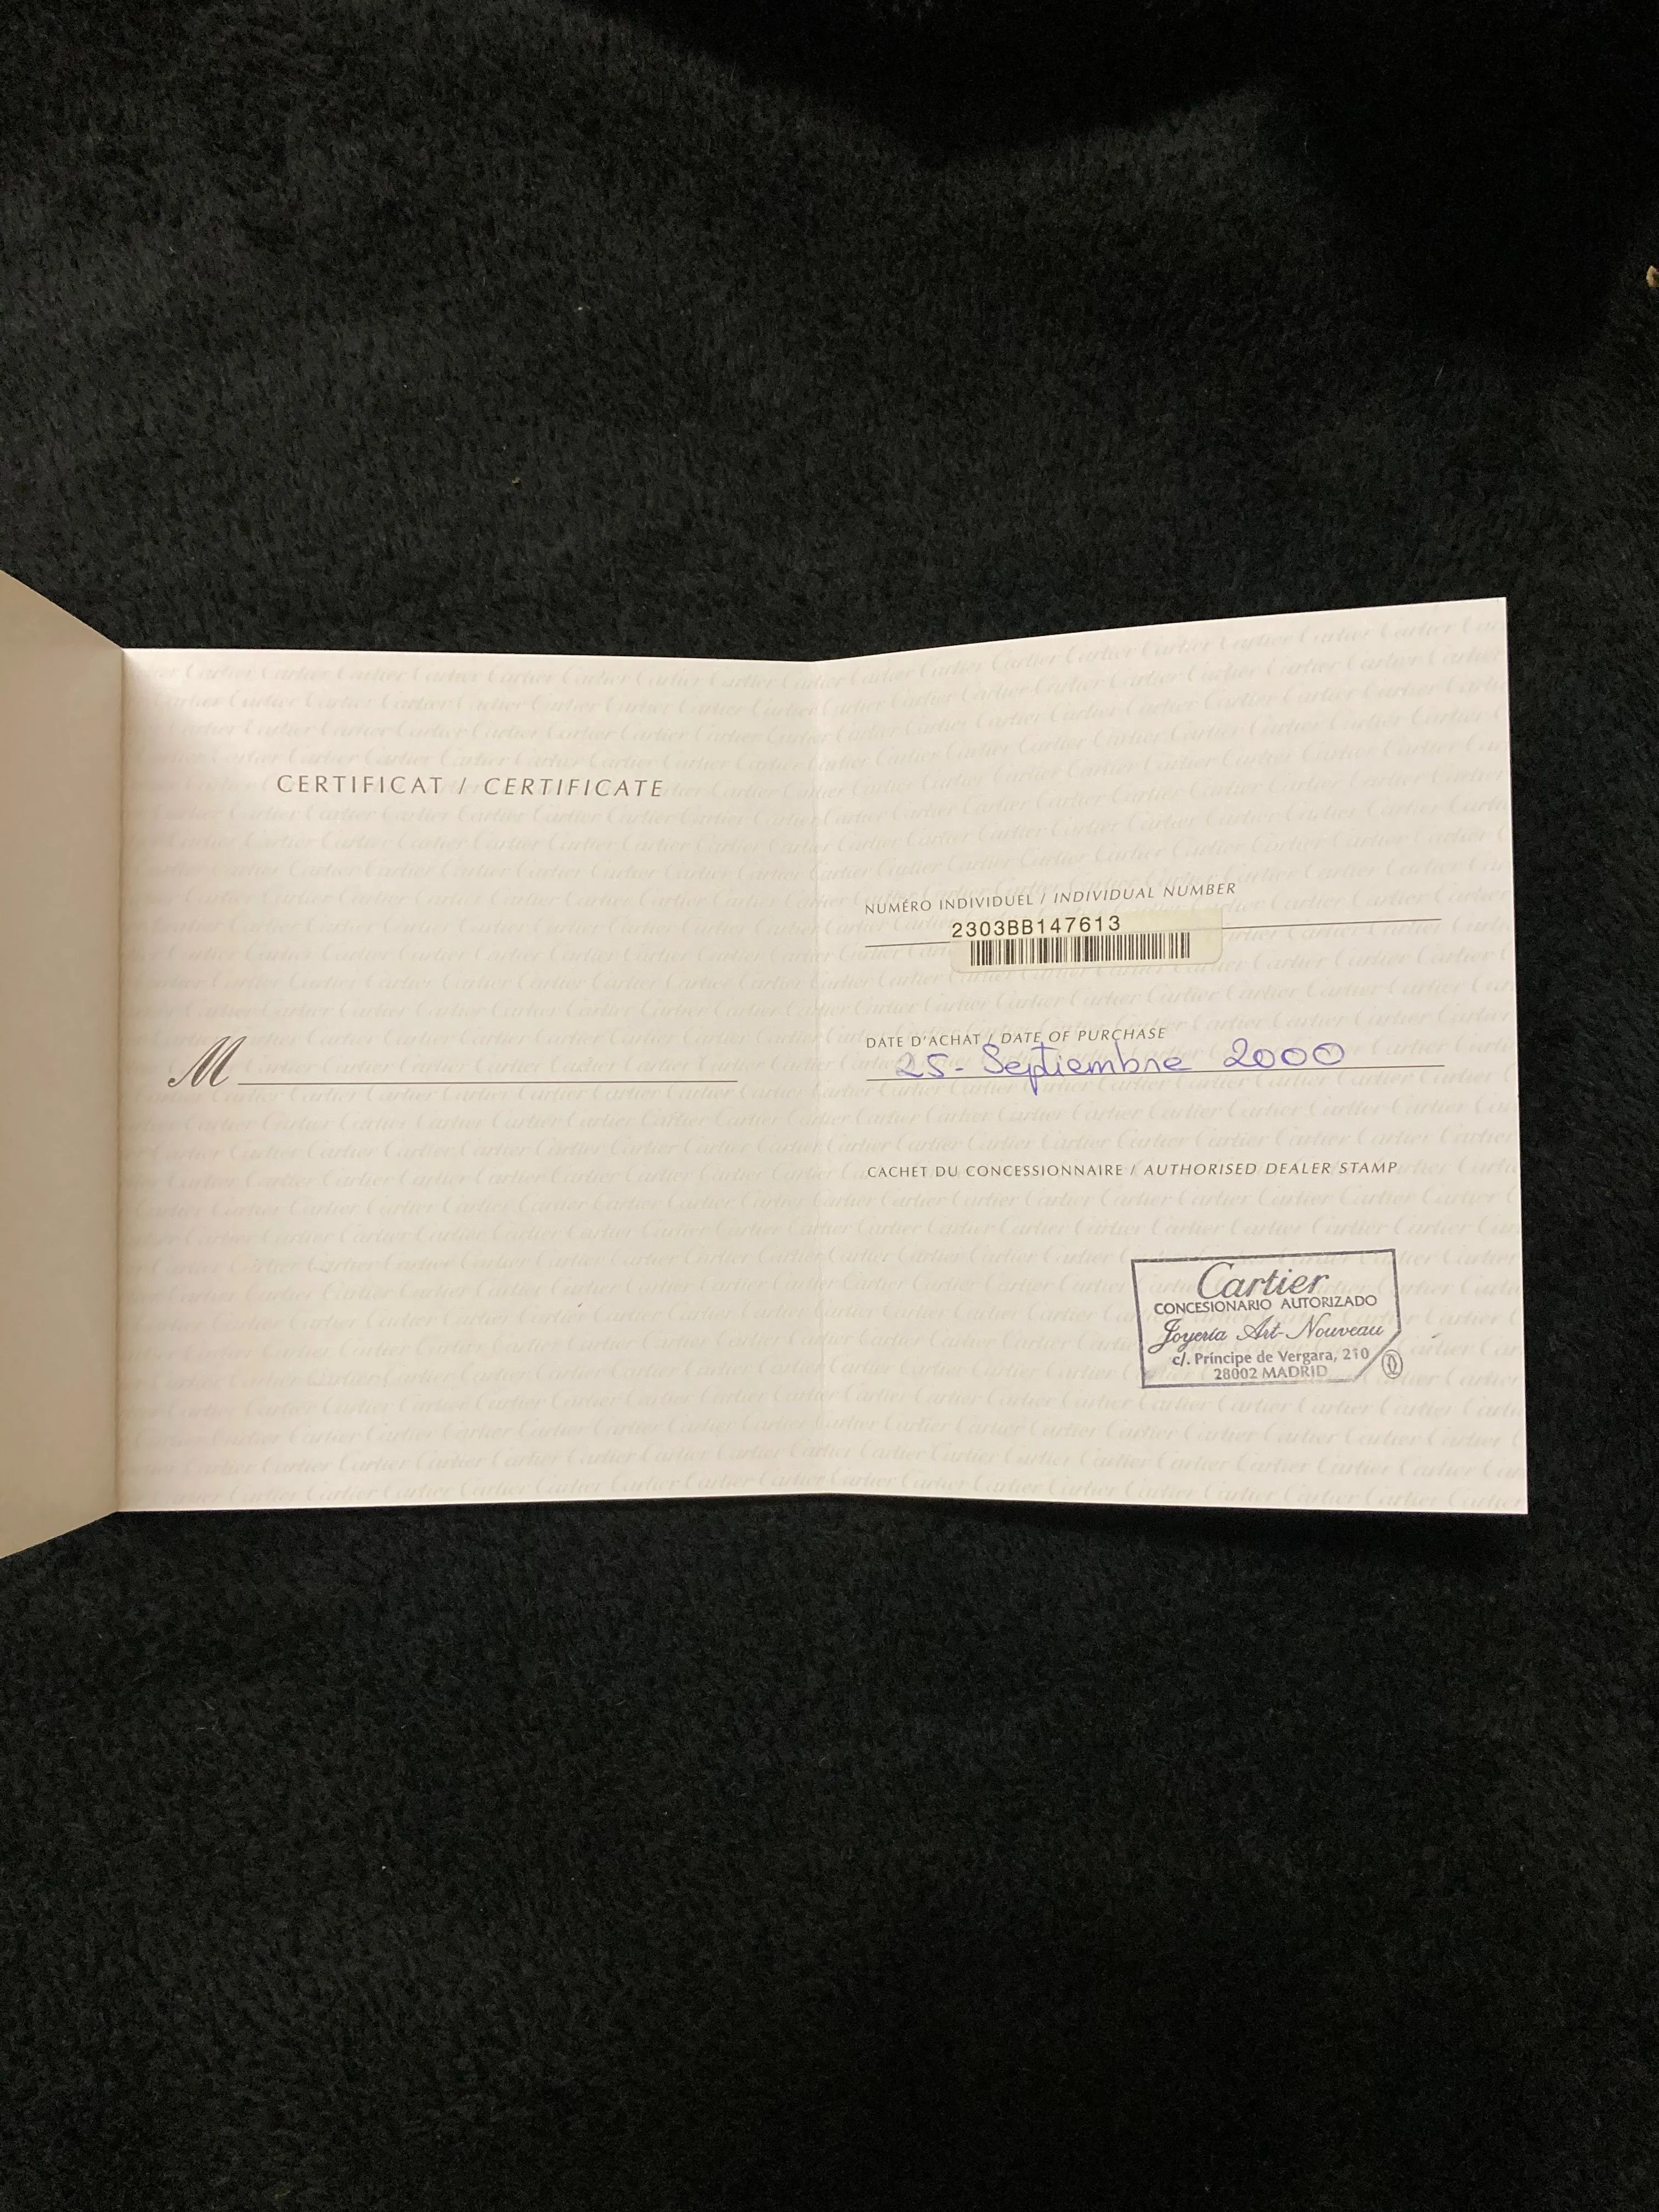 CERTIFICAT / CERTIFICATE
M
NUMÉRO INDIVIDUEL / INDIVIDUAL NUMBER
2303BB147613
DATE D'ACHAT / DATE OF PURCHASE
25- Septiembre 2000
CACHET DU CONCESSIONNAIRE / AUTHORISED DEALER STAMP
Cartier
CONCESIONARIO AUTORIZADO
Joyería Art-Nouveau
c/. Príncipe de Vergara, 210
28002 MADRID